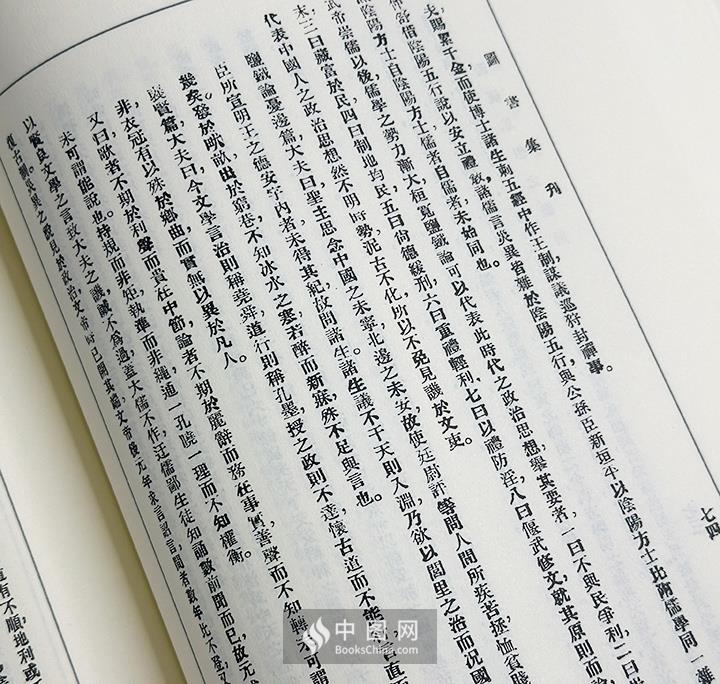 圖書集刊
七四
夫賜累千金，而使博士諸生刺五經中作王制，謀議巡狩封禪事。
皆借陰陽五行說以安立禮教，諸儒言災異皆雜於陰陽五行，與公孫臣新垣平以陰陽方士比附儒學同一
陰陽方士自陰陽方士，儒者自儒者，未始同也。
武帝崇儒以後，儒學之勢力漸大，桓寬鹽鐵論可以代表此時代之政治思想，舉其要者，一曰不與民爭利，二曰
末，三曰藏富於民，四曰制地均民，五曰尚德緩刑，六曰重禮輕利，七曰以禮防淫，八曰偃武修文，就其原則而論
代表中國人之政治思想，然不明時勢，泥古不化，所以不免見譏於文吏。
鹽鐵論憂邊篇，大夫曰聖主思念中國之未寧，北邊之未安，故使廷尉評等問人間所疾苦，拯恤貧賤
臣所宣明王之德，安宇內者，未得其紀，故問諸生，諸生議不干天則入淵，乃欲以閭里之治而況國
幾矣。發於畎畝，出於窮巷，不知冰水之寒，若醉而新寤，殊不足與言也。
賢篇大夫曰，今文學言治則稱堯舜，道行則稱孔墨，授之政則不達，懷古道而不能行，言直而
非，衣冠有以殊於鄉曲，而實無以異於凡人。
又曰，歌者不期於利聲，而貴在中節，論者不期於麗辭，而務在事實，善聲而不知轉，不可謂
未可謂能說也。持規而非矩，執準而非繩，通一孔，曉一理，而不知權衡。
以賢良文學之言，故大夫之譏，誠不為過，蓋大儒不作，迂儒鄙生，徒知誦數前聞而已，故元
復古制災異之說，見於政治，文帝時已開其端，文帝後元年求言詔言，閒者數年比不登，又
直有不順，地利或
中图网
BooksChina.com